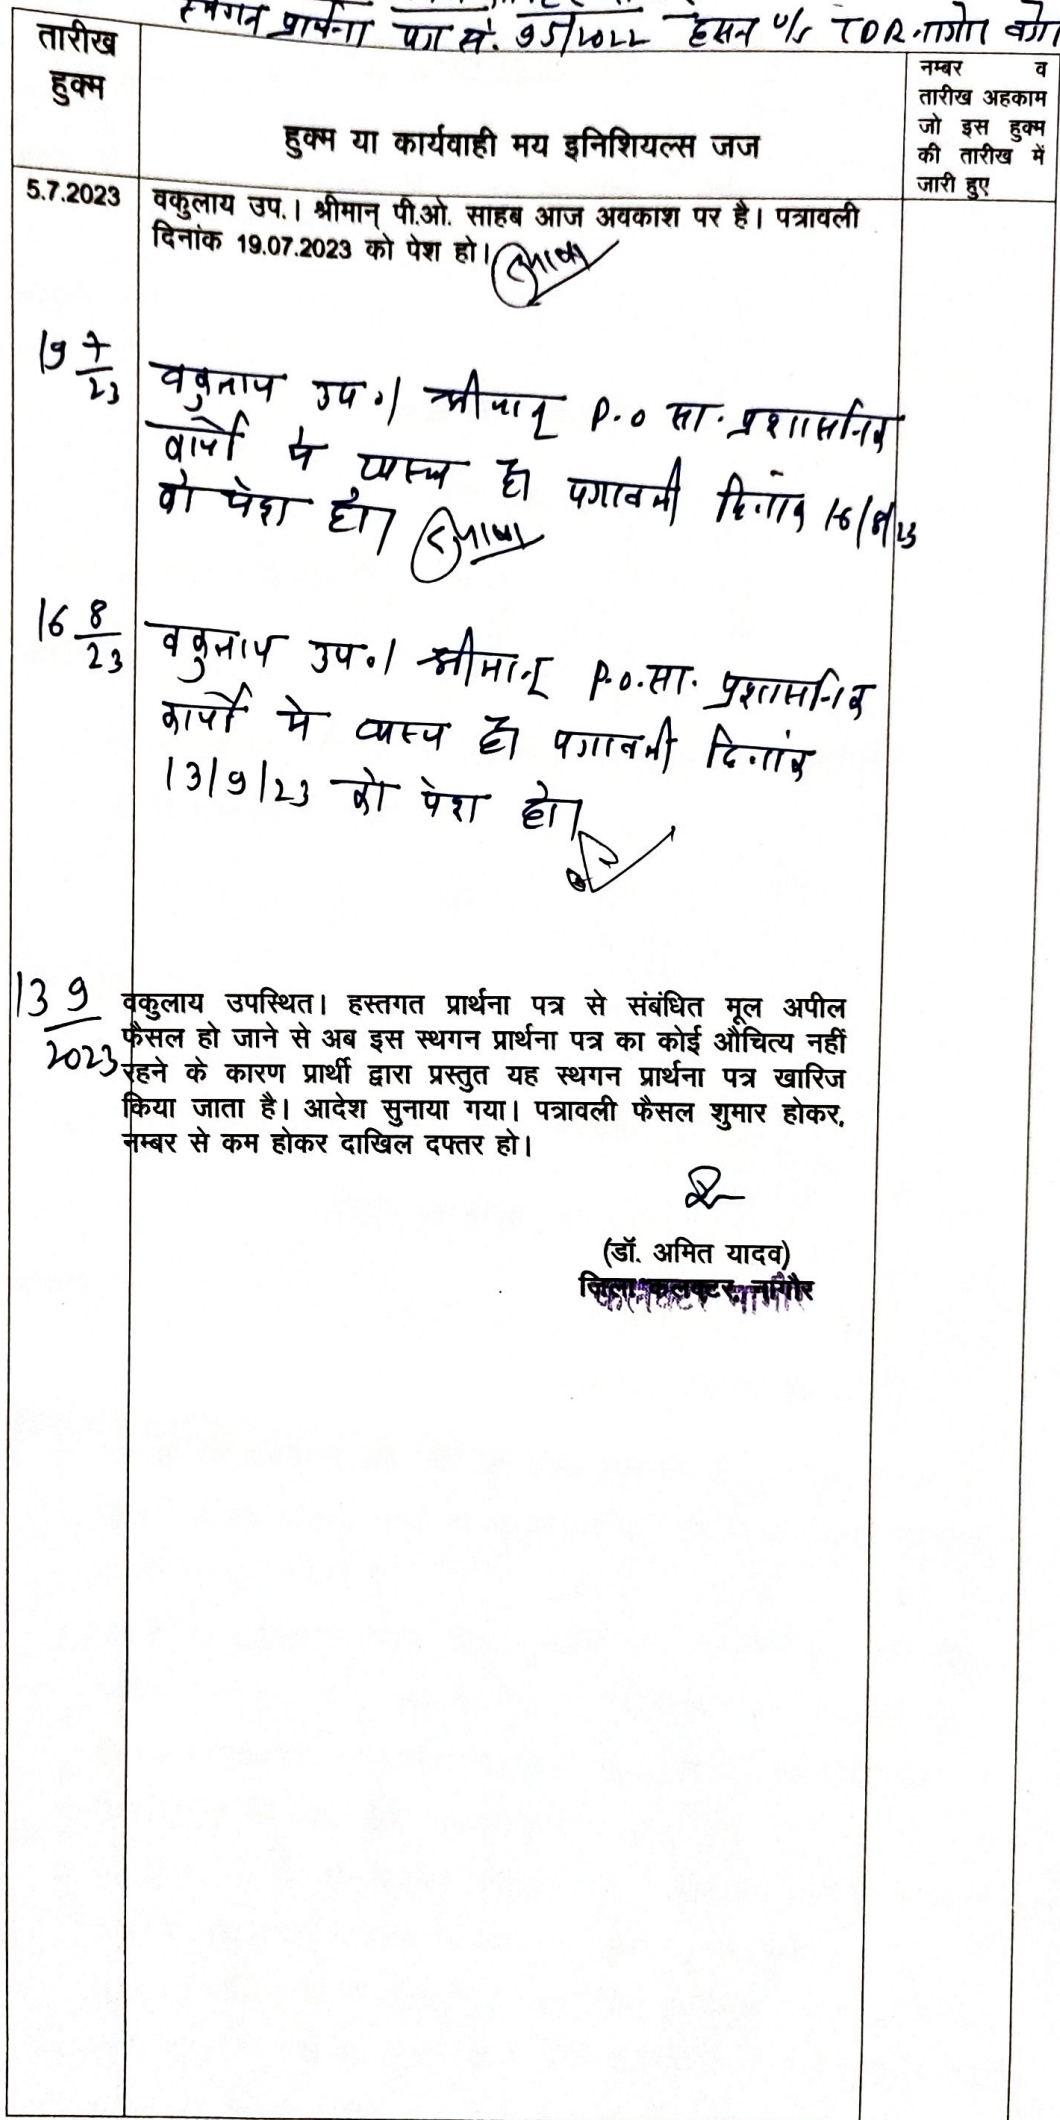 स्थगन प्रार्थना पत्र सं. 95/2022 हसन U/s TDR नागौर वगै।
तारीख
हुक्म
हुक्म या कार्यवाही मय इनिशियल्स जज
नम्बर व
तारीख अहकाम
जो इस हुक्म
की तारीख में
जारी हुए
5.7.2023 वकुलाय उप.। श्रीमान् पी.ओ. साहब आज अवकाश पर है। पत्रावली
दिनांक 19.07.2023 को पेश हो।
19 7/23 वकुलाय उप०। श्रीमान् P.O सा. प्रशासनिक
कार्यो मे व्यस्त है। पत्रावली दिनांक 16/8/23
को पेश हो।
16 8/23 वकुलाय उप०। श्रीमान् P.O. सा. प्रशासनिक
कार्यो मे व्यस्त है। पत्रावली दिनांक
13/9/23 को पेश हो।
13 9/2023 वकुलाय उपस्थित। हस्तगत प्रार्थना पत्र से संबंधित मूल अपील
फैसल हो जाने से अब इस स्थगन प्रार्थना पत्र का कोई औचित्य नहीं
रहने के कारण प्रार्थी द्वारा प्रस्तुत यह स्थगन प्रार्थना पत्र खारिज
किया जाता है। आदेश सुनाया गया। पत्रावली फैसल शुमार होकर,
नम्बर से कम होकर दाखिल दफ्तर हो।
(डॉ. अमित यादव)
जिला कलक्टर, नागौर
कलक्टर नागौर